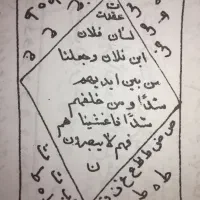 عقدت
لسان فلان
ابن فلان وجعلنا
من بين ايديهم
سدًا ومن خلفهم
سدًا فاغشيناهم
فهم لا يبصرون
ن